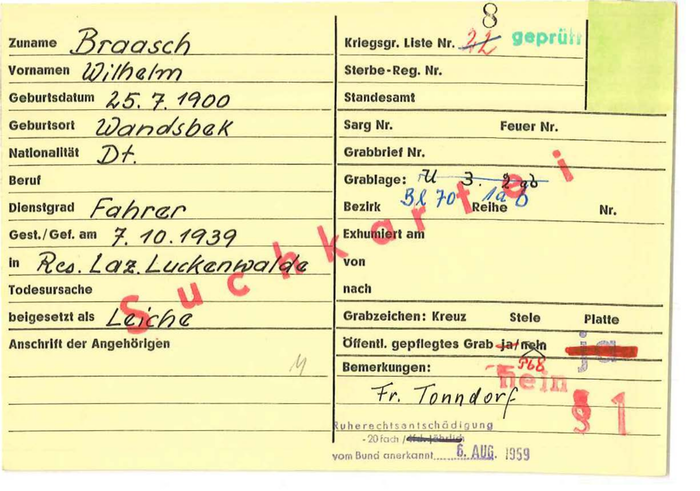 8
Zuname Braasch
Vornamen Wilhelm
Geburtsdatum 25. 7. 1900
Geburtsort Wandsbek
Nationalität Dt.
Beruf
Dienstgrad Fahrer
Gest./Gef. am 7. 10. 1939
in Res. Laz. Luckenwalde
Todesursache
beigesetzt als Leiche
Anschrift der Angehörigen
Kriegsgr. Liste Nr. 22 geprüft
Sterbe-Reg. Nr.
Standesamt
Sarg Nr. Feuer Nr.
Grabbrief Nr.
Grablage: U 3. 2 gb
Bezirk Bl 70 Reihe 1a b Nr.
Exhumiert am
von
nach
Grabzeichen: Kreuz Stele Platte
Öffentl. gepflegtes Grab ja/nein ja
Bemerkungen: nein
Fr. Tonndorf § 1
Suchkartei
Ruherechtsentschädigung
-20fach / lfd. jährlich
vom Bund anerkannt 6. AUG. 1959